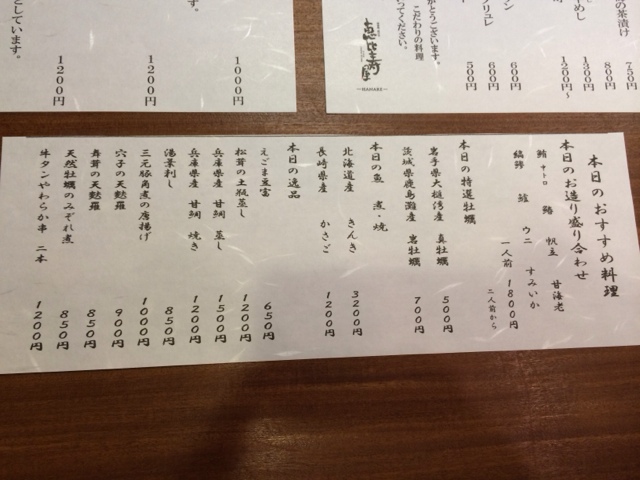 本日のおすすめ料理
本日のお造り盛り合わせ
鮪 中トロ 帆立 甘海老
ウニ すみいか
一人前 1800円
二人前から
本日の特選牡蠣
岩手県大槌湾産 真牡蠣 500円
茨城県鹿島灘産 岩牡蠣 700円
本日の魚 煮・焼
北海道産 きんき 3200円
長崎県産 かさご 1200円
本日の逸品
えごま豆富 650円
松茸の土瓶蒸し 1200円
兵庫県産 甘鯛 蒸し 1500円
兵庫県産 甘鯛 焼き 1200円
湯葉刺し 850円
三元豚角煮の唐揚げ 1000円
穴子の天麩羅 900円
舞茸の天麩羅 850円
天然牡蠣のみぞれ煮 850円
牛タンやわらか串 二本 1200円
の茶漬け 750円
800円
めし 1300円
1200円～
ン 600円
ブリュレ 600円
ト 500円
がとうございます。
こだわりの料理
ってください。
恵比寿屋
1000円
す。
1200円
としています。
1200円